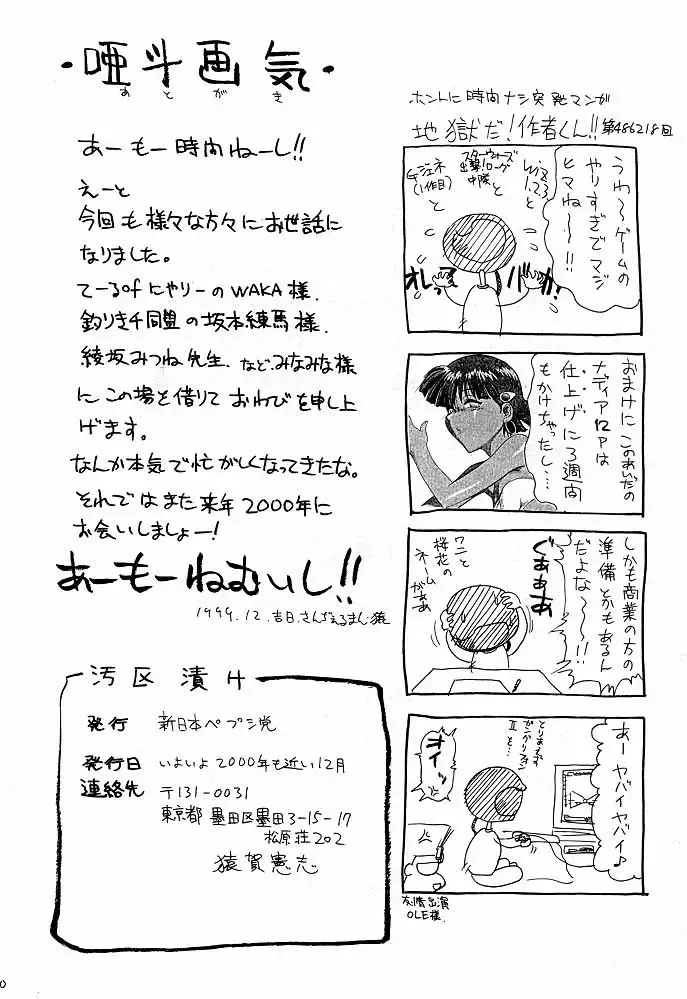 ・唖斗画気・
あとがき
あーもー時間ねーし!!
えーと
今回も様々な方々にお世話に
なりました。
てーるofにゃりーのWAKA様.
釣りキチ同盟の坂本練馬様.
綾坂みつね先生.などみなみな様
にこの場を借りておわびを申し上
げます。
なんか本気で忙がしくなってきたな。
それではまた来年2000年に
お会いしましょー!
あーもーねむいし!!
1999.12.吉日.さんぢぇるまん猿
汚区漬け
発行 新日本ペプシ党
発行日 いよいよ2000年も近い12月
連絡先 〒131-0031
東京都墨田区墨田3-15-17
松原荘202
猿賀憲志
ホントに時間ナシ突発マンガ
地獄だ!作者くん!!第486218回
うわ〜ゲームの
やりすぎでマジ
ヒマね〜〜!!
Wiz
1.2.3
と
スターウォーズ
出撃!ローグ
中隊
と
デジェネ
(1作目)
と
オレって
バカか!
おまけにこのあいだの
ナディア12Pは
仕上げに3週間
もかけちゃったし…
しかも商業の方の
準備とかもあるん
だよな〜〜!!
ぐぁぁぁ
ワニと
桜花の
ネームがぁぁ
あーヤバイヤバイ♪
とりあえず
ガンガリフォン
IIを…
オイッ
友情出演
OLE様.
0